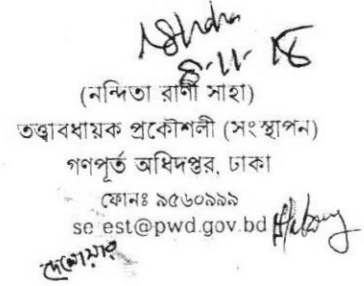 ৮.11.18
(নন্দিতা রাণী সাহা)
তত্ত্বাবধায়ক প্রকৌশলী (সংস্থাপন)
গণপূর্ত অধিদপ্তর, ঢাকা
ফোনঃ ৯৫৬০৯৯৯
se_est@pwd.gov.bd
দেলোয়ার